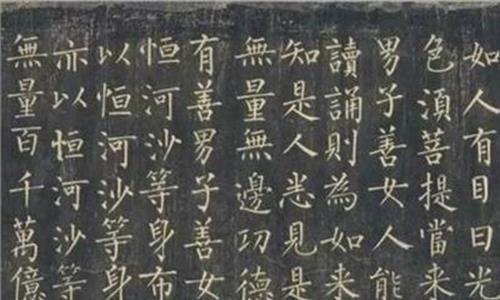 如人有目日光
色湏菩提當来
男子善女人能
讀誦則為如来
知是人悉見是
無量無邊功德
有善男子善女
恒河沙等身布
以恒河沙等身
亦以恒河沙等
無量百千萬億